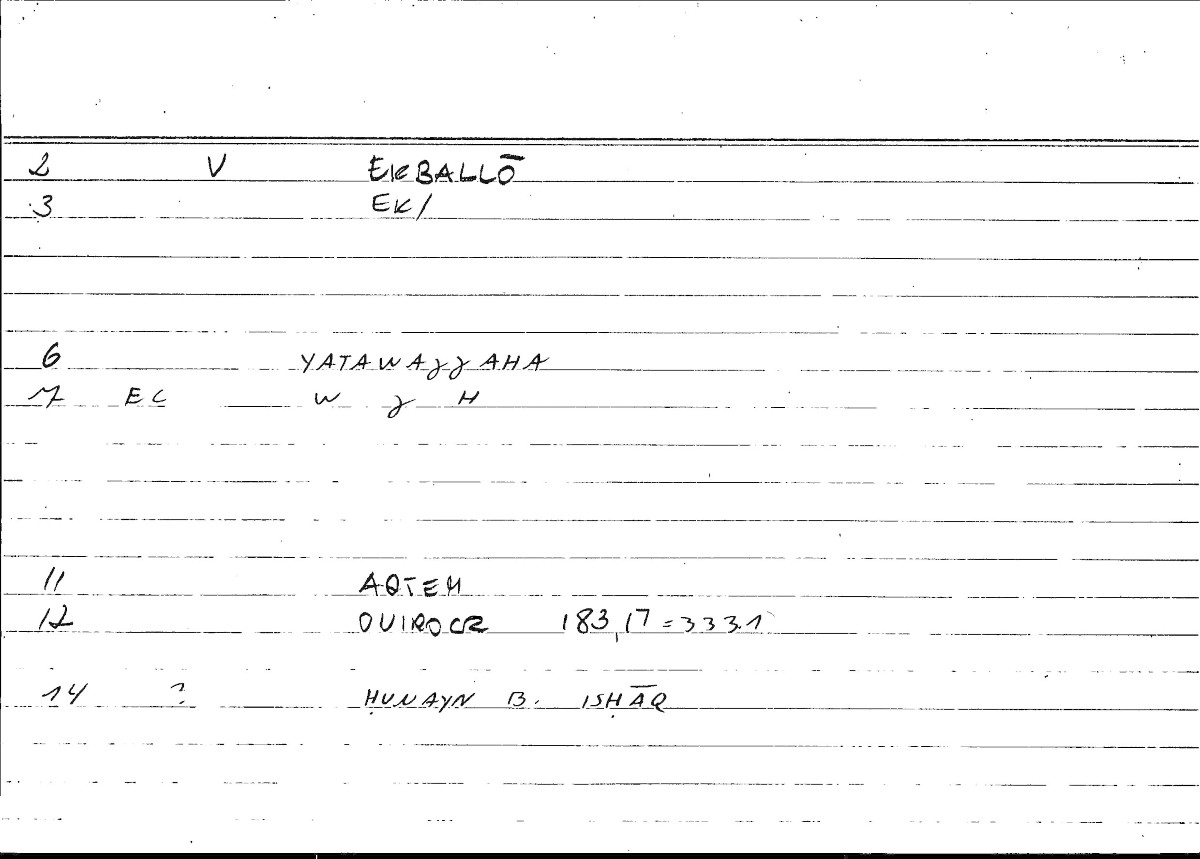 2 V EKBALLŌ
3 EK/
6 YATAWAJJAHA
7 EC W J H
11 AQTEM
12 OVIROCR 183,17=333.1
14 ? ḤUNAYN B. ISḤĀQ